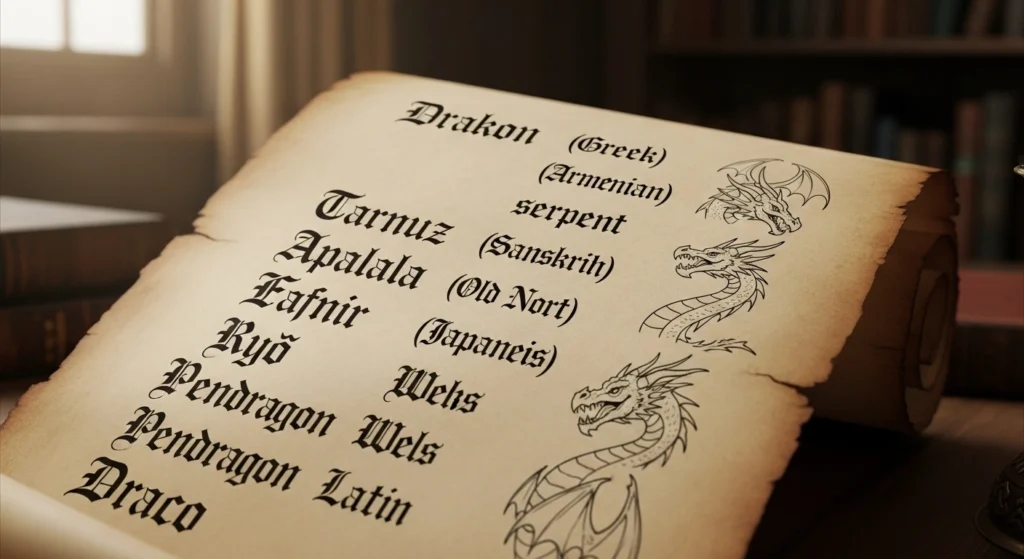 Drakon (Greek)
(Armenian)
serpent
Tarnuz (Sanskrih)
Apalala (Old Nort)
Eafnir (Japaneis)
Ryõ Weks
Pendragon Wels
Pendragon Latin
Draco